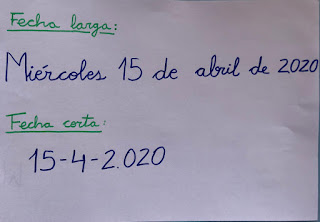 Fecha larga:
Miércoles 15 de abril de 2020
Fecha corta:
15-4-2.020